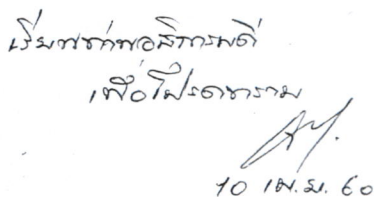 เรียนท่านอธิการบดี
เพื่อโปรดทราบ
10 เม.ย. 60